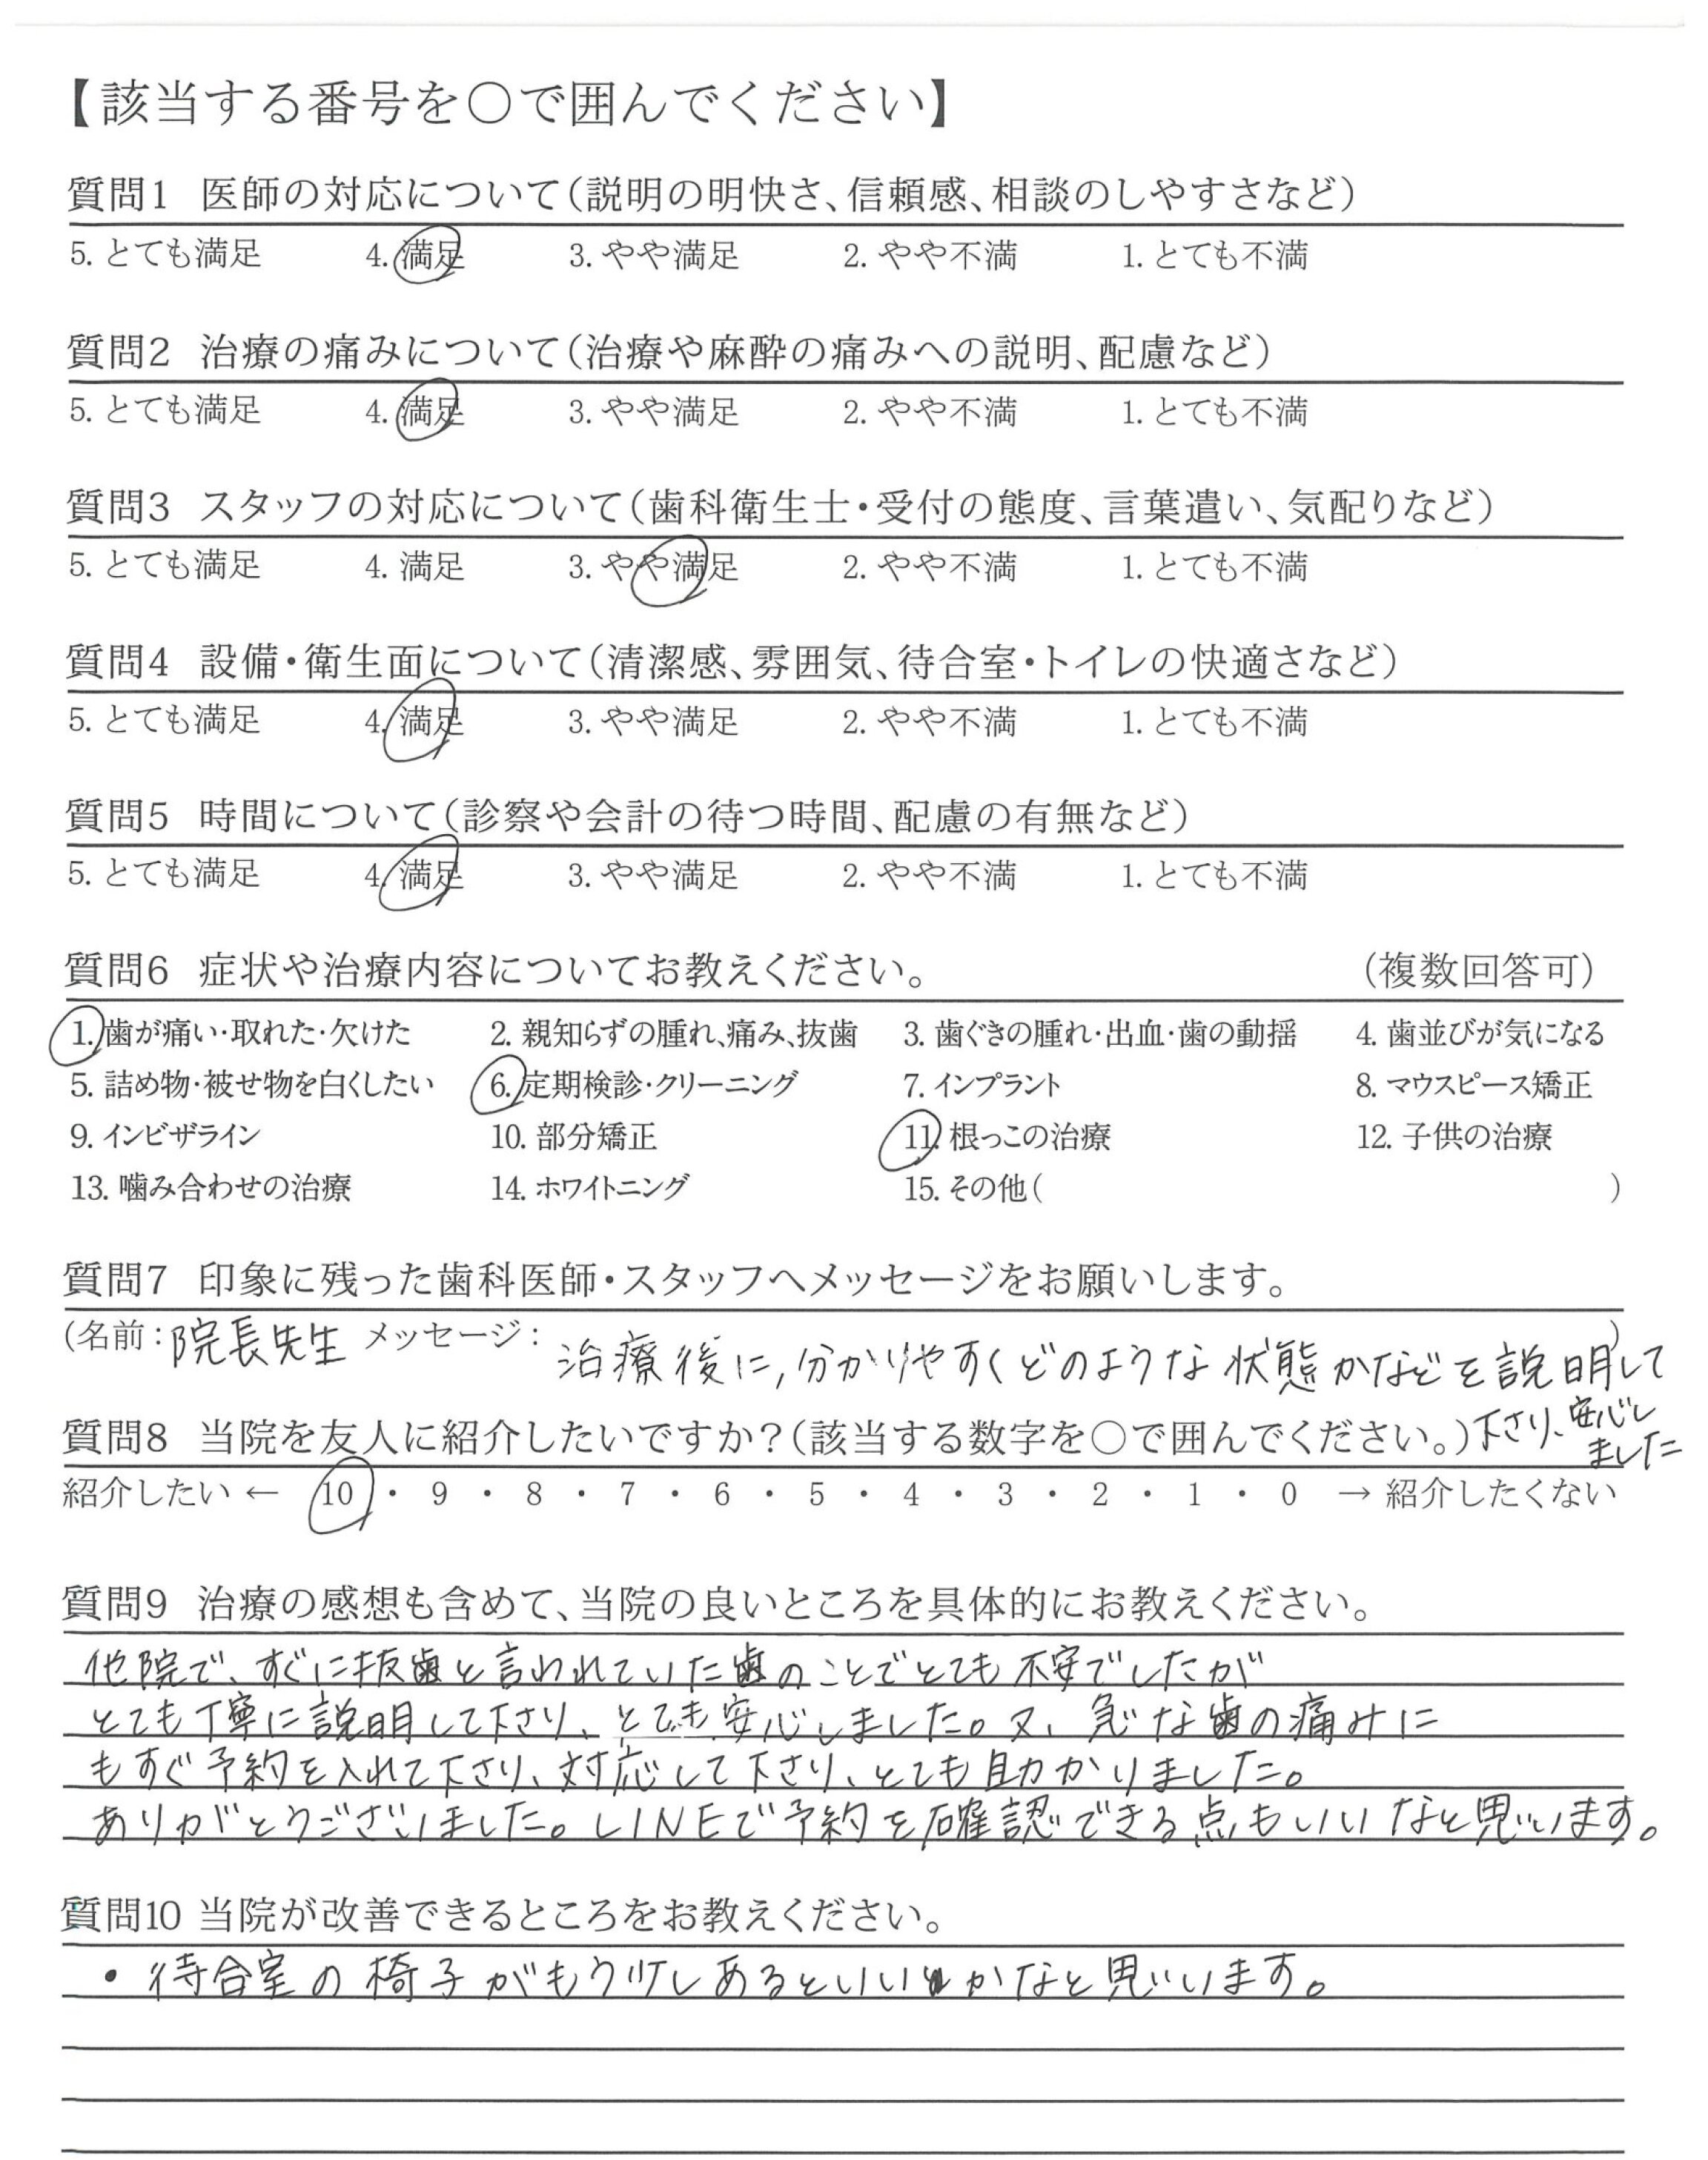 【該当する番号を○で囲んでください】
質問1 医師の対応について(説明の明快さ、信頼感、相談のしやすさなど)
5. とても満足 4. 満足 3. やや満足 2. やや不満 1. とても不満
質問2 治療の痛みについて(治療や麻酔の痛みへの説明、配慮など)
5. とても満足 4. 満足 3. やや満足 2. やや不満 1. とても不満
質問3 スタッフの対応について(歯科衛生士・受付の態度、言葉遣い、気配りなど)
5. とても満足 4. 満足 3. やや満足 2. やや不満 1. とても不満
質問4 設備・衛生面について(清潔感、雰囲気、待合室・トイレの快適さなど)
5. とても満足 4. 満足 3. やや満足 2. やや不満 1. とても不満
質問5 時間について(診察や会計の待つ時間、配慮の有無など)
5. とても満足 4. 満足 3. やや満足 2. やや不満 1. とても不満
質問6 症状や治療内容についてお教えください。 (複数回答可)
1. 歯が痛い・取れた・欠けた 2. 親知らずの腫れ、痛み、抜歯 3. 歯ぐきの腫れ・出血・歯の動揺 4. 歯並びが気になる
5. 詰め物・被せ物を白くしたい 6. 定期検診・クリーニング 7. インプラント 8. マウスピース矯正
9. インビザライン 10. 部分矯正 11. 根っこの治療 12. 子供の治療
13. 噛み合わせの治療 14. ホワイトニング 15. その他( )
質問7 印象に残った歯科医師・スタッフへメッセージをお願いします。
(名前：院長先生 メッセージ： 治療後に、分かりやすくどのような状態かなどを説明して)
下さり、安心し
ました
質問8 当院を友人に紹介したいですか？(該当する数字を○で囲んでください。)
紹介したい ← 10 ・ 9 ・ 8 ・ 7 ・ 6 ・ 5 ・ 4 ・ 3 ・ 2 ・ 1 ・ 0 → 紹介したくない
質問9 治療の感想も含めて、当院の良いところを具体的にお教えください。
他院で、すぐに抜歯と言われていた歯のことでとても不安でしたが
とても丁寧に説明して下さり、とても安心しました。又、急な歯の痛みに
もすぐ予約を入れて下さり、対応して下さり、とても助かりました。
ありがとうございました。LINEで予約を確認できる点もいいなと思います。
質問10 当院が改善できるところをお教えください。
・待合室の椅子がもう少しあるといいかなと思います。